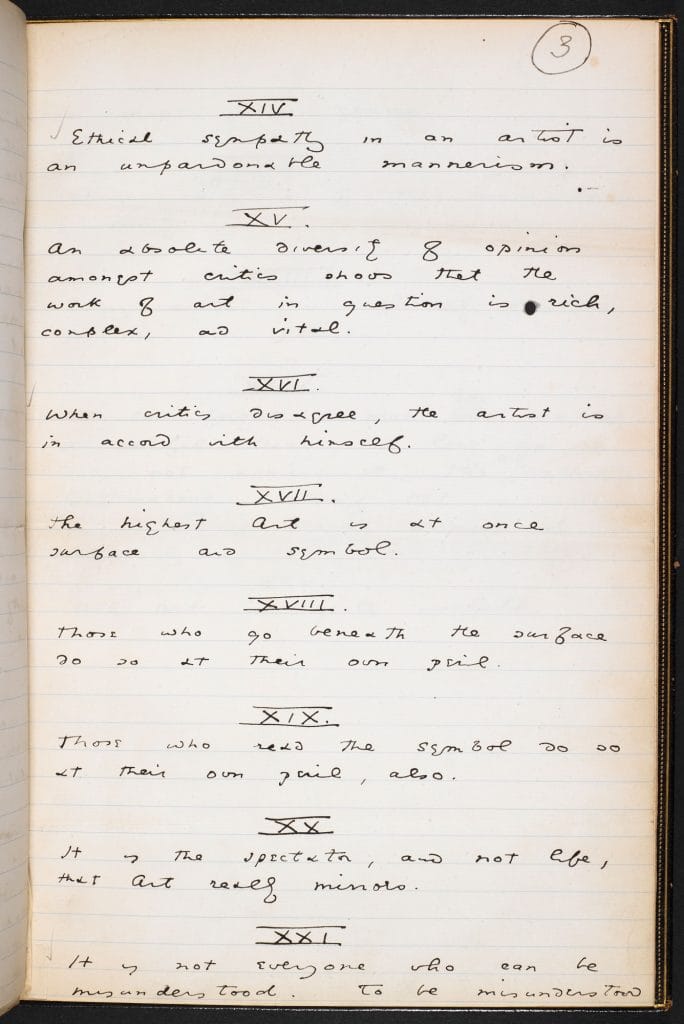 3
XIV
Ethical sympathy in an artist is
an unpardonable mannerism.
XV.
An absolute diversity of opinion
amongst critics shows that the
work of art in question is rich,
complex, and vital.
XVI.
When critics disagree, the artist is
in accord with himself.
XVII.
The highest Art is at once
surface and symbol.
XVIII.
Those who go beneath the surface
do so at their own peril.
XIX.
Those who read the symbol do so
at their own peril, also.
XX
It is the spectator, and not life,
that Art really mirrors.
XXI
It is not everyone who can be
misunderstood. To be misunderstood